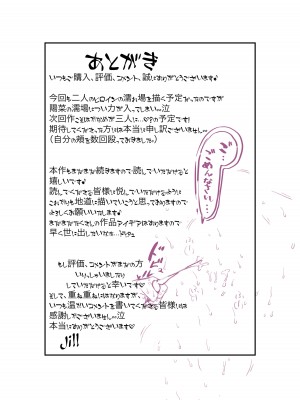 あとがき
いつもご購入、評価、コメント、誠にありがとうございます♪
今回も二人のヒロインの濡れ場を描く予定だったのですが
陽菜の濡場につい力が入ってしまい…泣
次回作こそはがためが三人に…♡?の予定です!
期待してくださった方には本当に申し訳ございません…
(自分の頬を数回殴っておきました。)
本作もまだまだ続きますので読んでいただけると
嬉しいです♪
読してくださる皆様に悦しんでいただけるように
これからも地道に描いていこうと思っておりますので
よろしくお願いいたします♪
まだまだたくさんの作品アイデアはありますので
早く世に出したい
もし評価、コメントがまだの方
いらっしゃいましたら
していただけると幸いです♡
そして、重ね重ねにはなりますが、
いつも温かいコメントを書いてくださる皆様には
感謝しかございません…泣
本当にありがとうございます♪
Jill
ごめんなさい…